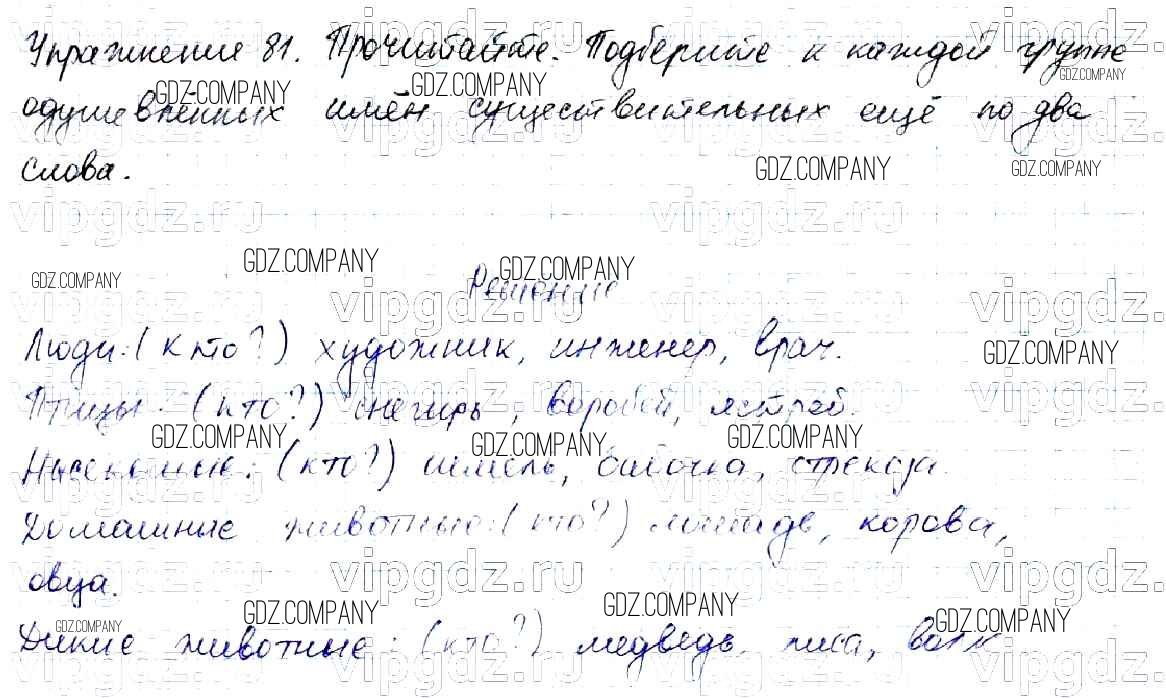 Упражнение 81. Прочитайте. Подберите к каждой группе
одушевлённых имён существительных ещё по два
слова.
Решение
Люди: (кто?) художник, инженер, врач.
Птицы: (кто?) снегирь, воробей, ястреб.
Насекомые: (кто?) шмель, бабочка, стрекоза.
Домашние животные: (кто?) лошадь, корова,
овца.
Дикие животные: (кто?) медведь, лиса, волк